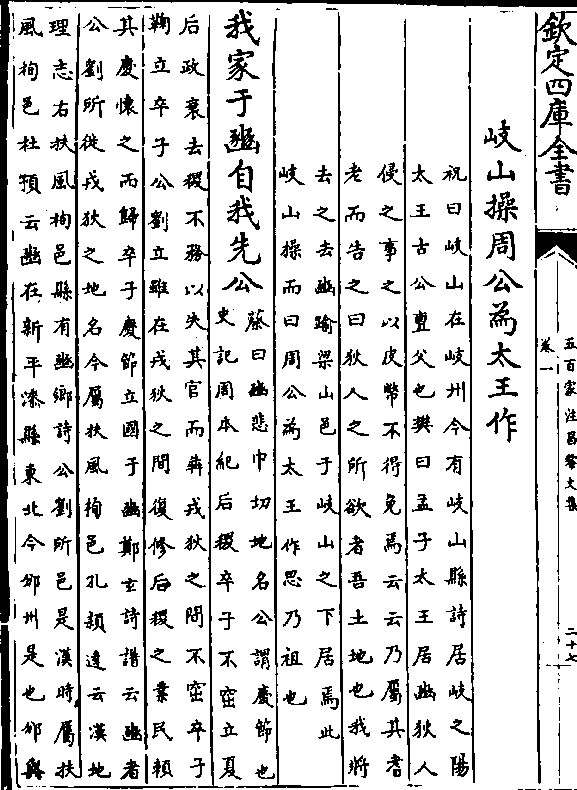 欽定四庫全書
五百家注昌黎文集
卷一
二十七
岐山操周公為太王作
祝曰岐山在岐州今有岐山縣詩居岐之陽
太王古公亶父也樊曰孟子太王居豳狄人
侵之事之以皮幣不得免焉云云乃屬其耆
老而告之曰狄人之所欲者吾土地也我將
去之去豳踰梁山邑于岐山之下居焉此
岐山操而曰周公為太王作思乃祖也
我家于豳自我先公
蔡曰豳悲巾切地名公謂慶節也
史記周本紀后稷卒子不窋立夏
后政衰去稷不務以失其官而犇戎狄之間不窋卒子
鞠立卒子公劉立雖在戎狄之間復修后稷之業民賴
其慶懷之而歸卒子慶節立國于豳鄭玄詩譜云豳者
公劉所從戎狄之地名今屬扶風栒邑孔穎達云漢地
理志右扶風栒邑縣有豳鄉詩公劉所邑是漢時屬扶
風栒邑杜預云豳在新平漆縣東北今邠州是也邠與